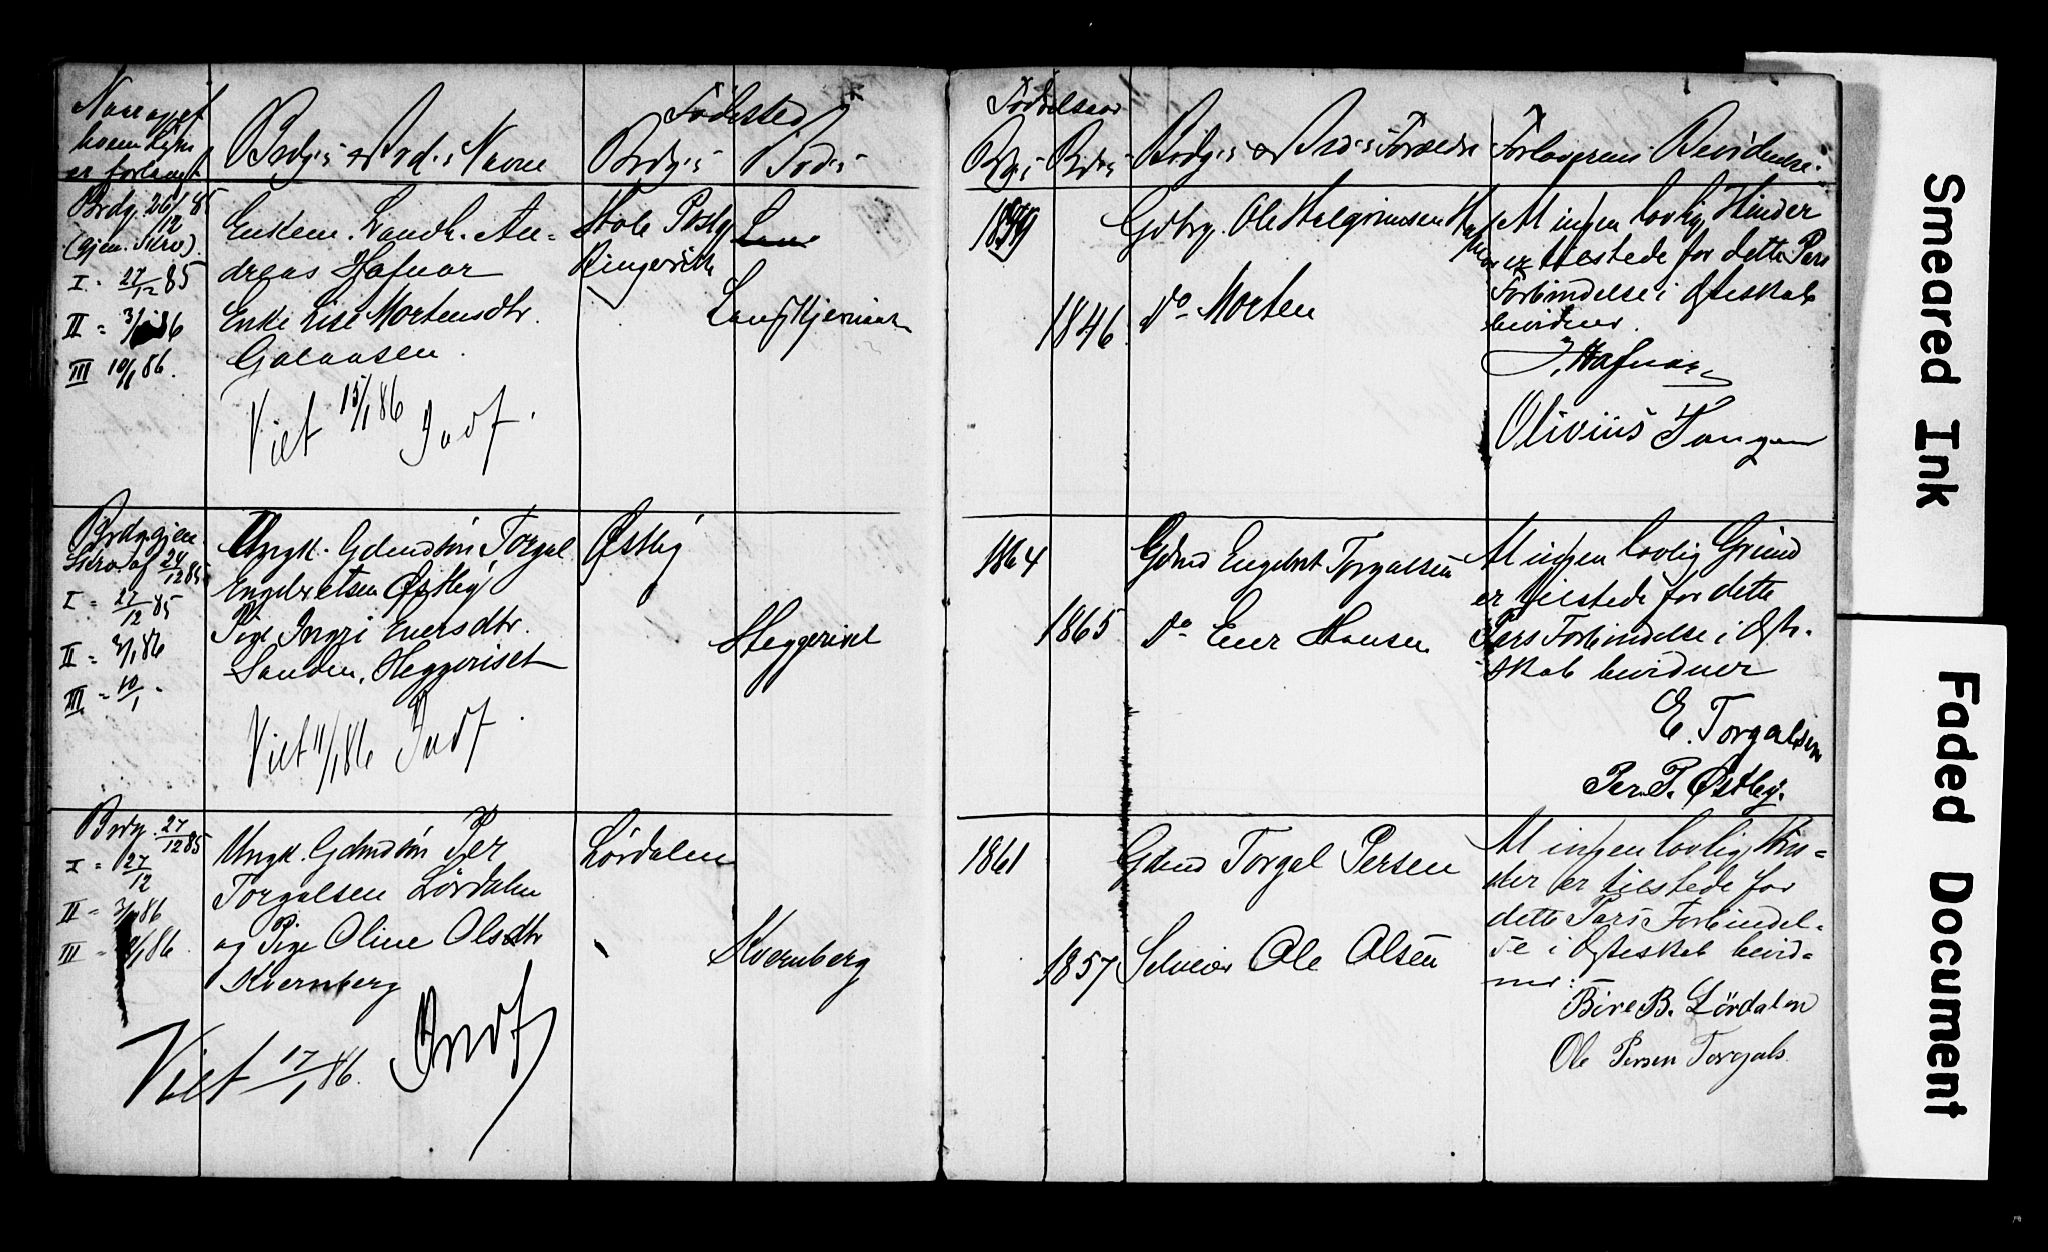 Naar og af
hvem Lysn.
er forlangt
Brdg.s & Brd.s Navne
Fødested
Brdg.s
Brds
Fødselsaar
Brdg.s Brds
Brdg.s & Brd.s Forældre
Forloverens Bevidnelse.
Brdg. 26/12 85
(gjen. Skrv).
I. 27/12 85
II = 3/1 86
III 10/1 86.
Enkem. Landh. An=
dreas Hafnor
Enke Lise Mortensdtr.
Galaasen.
Viet 15/1 86 Indf.
Hole Præstg
Ringerike
1846
Gdbrg. Ole Halgrimsen Hafnor
Do Morten
At ingen lovlig Hinder
er tilstede for dette Pars
Forbindelse i Ægteskab
bevidner.
Hafnor
Olivius Tangen
Brdg. gjen.
Skrv. af 24/12 85
I = 27/12 85
II = 3/1 86
III = 10/1 "
Ungk. Gdmdsøn Torgal
Engebretsen Østby
Pige Ingri Enersdtr.
Sanden, Heggeriset
Viet 11/1 86 Indf.
Østby
Heggeriset
1864
1865
Gdmd Engebret Torgalsen
Do Ener Hansen
At ingen lovlig Grund
er tilstede for dette
Pars Forbindelse i Ægte-
skab bevidner
E. Torgalsen
Per P. Østby.
Brdg. 27/12 85
I = 27/12
II = 3/1 86
III = /1 86.
Ungk. Gdmdsøn Per
Torgalsen Lørdalen
og Pige Oline Olsdtr
Kvernberg
Viet 17/1 86. Indf
Lørdalen
Kvernberg
1861
1857
Gdmd Torgal Persen
Selveier Ole Olsen
At ingen lovlig Hin=
der er tilstede for
dette Pars Forbindel=
se i Ægteskab bevid=
ner:
B. Lördalen
Ole Persen Torgals.
Smeared Ink
Faded Document